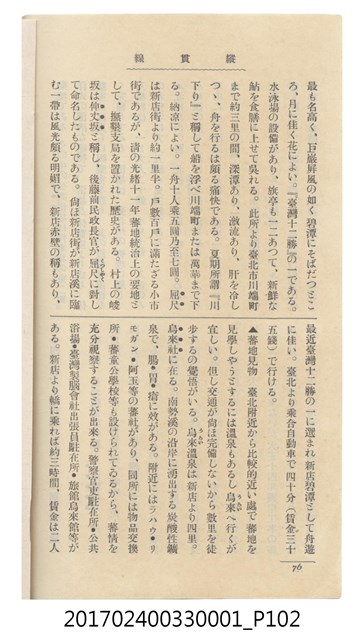 縱貫線
最も名高く、巨巖屛風の如く碧潭にそばだつとこ
ろ、月に佳く花によい。『臺灣十二勝』の一である。
水泳場の設備があり、旗亭も一二あつて、新鮮な
鮎を食膳に上せて吳れる。此所より臺北市川端町
まで約三里の間、深潭あり、激流あり、肝を冷し
つゝ、舟を行るは頗る痛快である。夏期所謂『川
下り』と稱して船を浮べ川端町または萬華まで下
る。納凉によい。一舟十人乘五圓乃至七圓。屈尺
は新店街より約一里半。戶數百戶に滿たざる小市
街であるが、淸の光緖十一年蕃地統治上の要地と
して、撫墾支局を置かれた歷史がある。村上の峻
坂は伸丈坂と稱し、後藤前民政長官が屈尺に對し
て命名したものである。尙ほ新店街が新店溪に臨
む一帶は風光頗る明媚で、新店赤壁の稱もあり、
最近臺灣十二勝の一に選まれ新店碧潭として舟遊
に佳い、臺北より乘合自動車で四十分(賃金三十
五錢)で行ける。
▲蕃地見物 臺北附近から比較的近い處で蕃地を
見學しやうとするには溫泉もあるし烏來へ行くが
宜しい。但し交通が尙ほ完備しないから數里を徒
步するの覺悟がいる。烏來溫泉は新店より四里。
烏來社に在る。南勢溪の沿岸に湧出する炭酸性鑛
泉で、腸・胃・瘡に效がある。附近にはラハウ・リ
モガン・阿玉等の蕃社があり、同所には物品交換
所・蕃童公學校等も設けられてゐるから、蕃情を
充分視察することが出來る。警察官吏駐在所・公共
浴場・臺灣製腦會社出張員駐在所・旅館烏來館等が
ある。新店より轎に乘れば約三時間、賃金は二人
76
201702400330001_P102